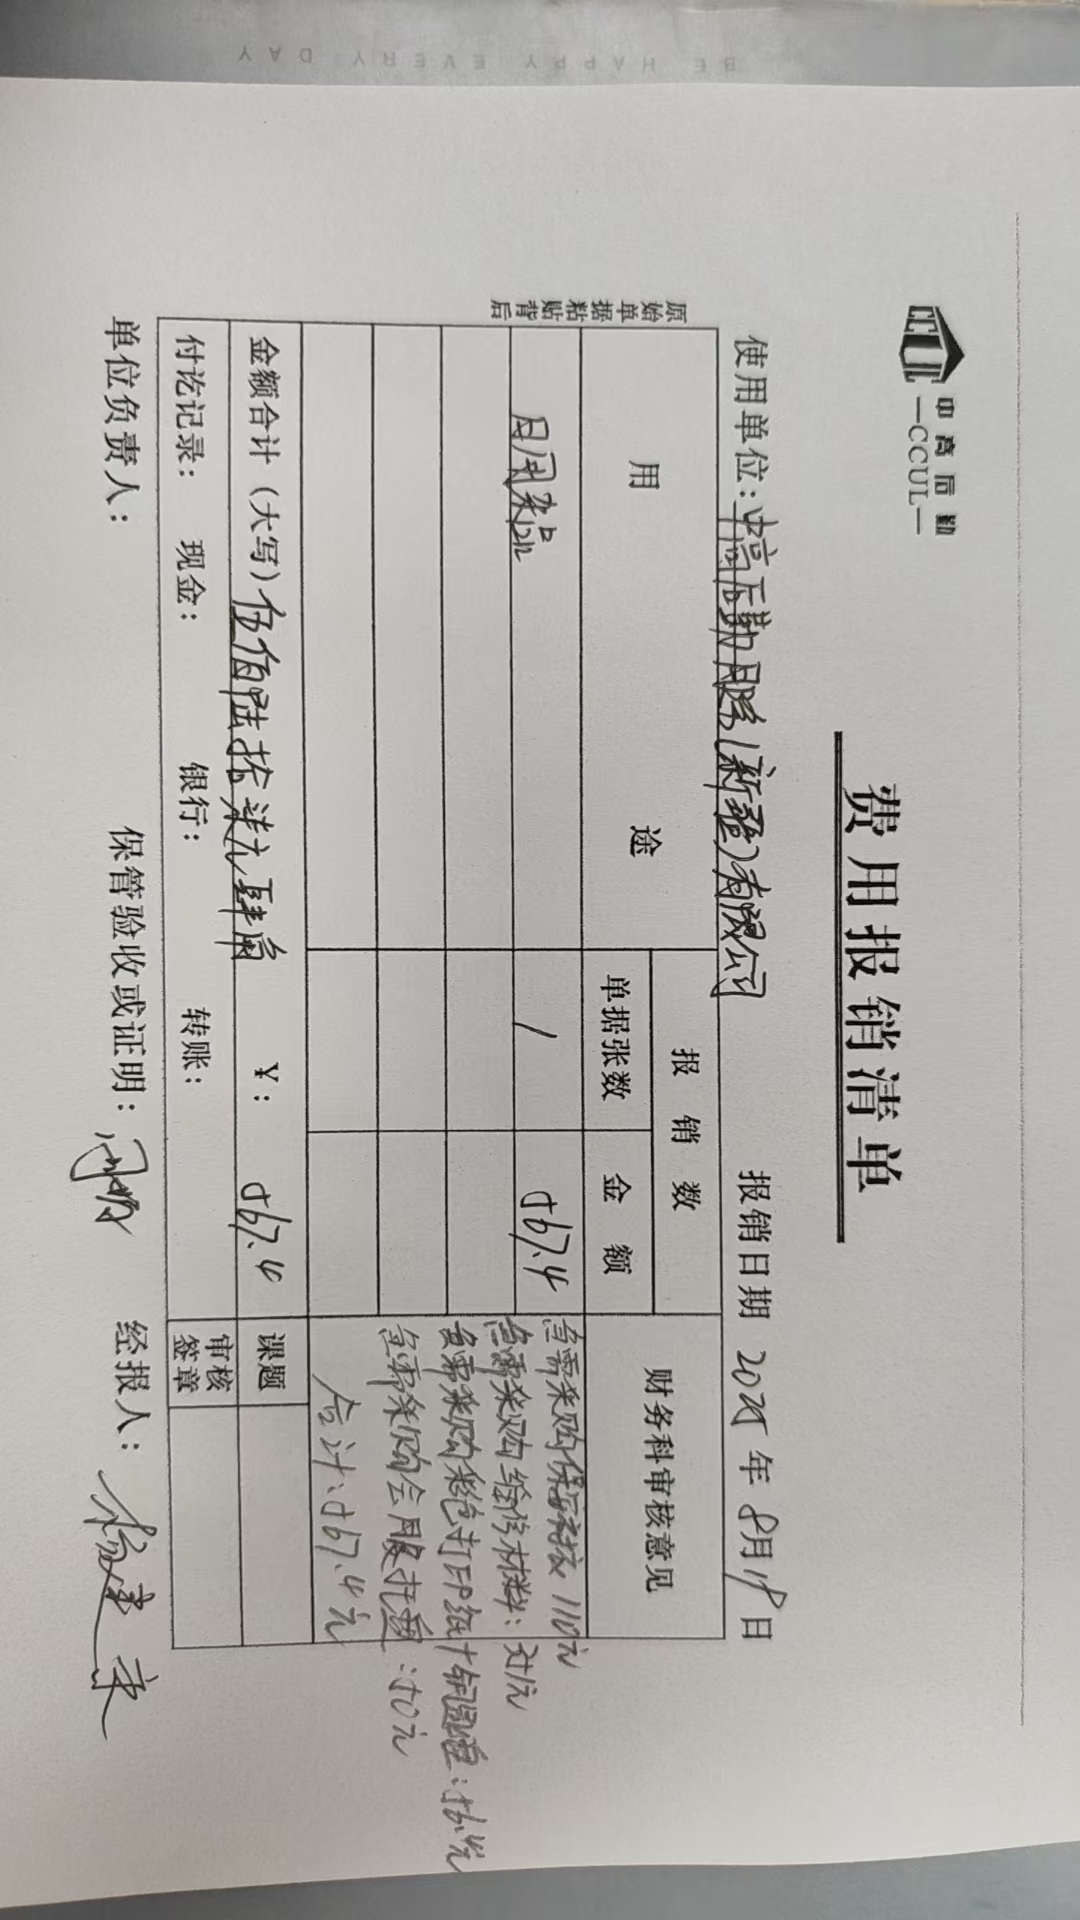 BE HAPPY EVERY DAY
中高后勤
—CCUL—
费用报销清单
使用单位：中高后勤服务（新疆）有限公司 报销日期 2025年8月18日
原始单据粘贴背后
用途 报销数 财务科审核意见
单据张数 金额
日用杂品 1 567.4
急需采购保密柜 110元
急需采购维修材料：351元
急需采购彩色打印纸+铜版纸：56.4元
急需采购会服托盘：50元
合计：567.4元
金额合计（大写）伍佰陆拾柒元肆角 ¥：567.4 课题
付讫记录： 现金： 银行： 转账： 审核签章
单位负责人： 保管验收或证明： 经报人：